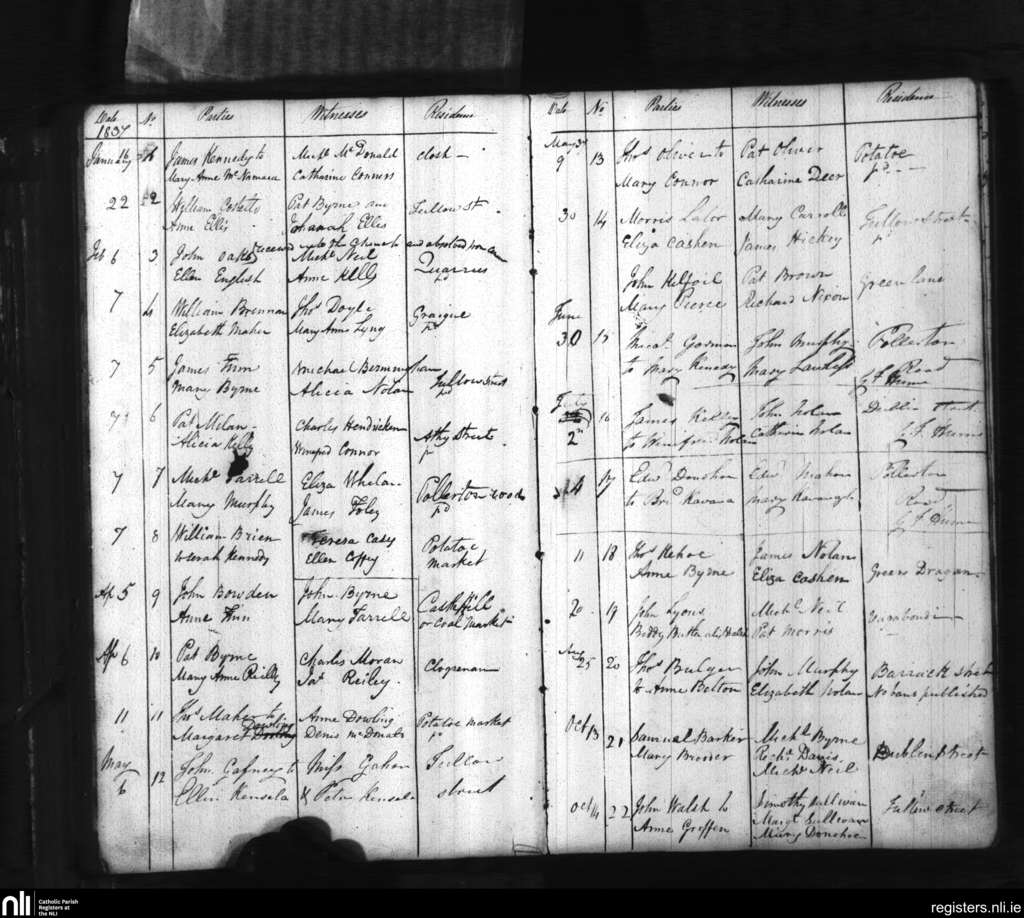 Date No. Parties Witnesses Residence
1837
16 James Kennedy to Michl McDonald Closh
Mary Anne McNamara Catharine Connors
22 2 William Pat Byrne and Tullow St.
Anne Ellis Johanah Ellis
received into the Church and absolved from
Feb 6 3 John Michl Neil Quarries
Ellen English Anne Kelly
7 4 William Brennan Thos Doyle Graigue
Elizabeth Maher Mary Anne Lyng
7 5 James Michael
Mary Byrne Alicia Nolan Tullow street
7 6 Pat Charles Hendricken Athy Street
Alicia Kelly Winefred Connor
7 7 Michl Farrell Eliza Whelan Pollerton road
Mary Murphy James Foley
7 8 William Brien Teresa Casey Potatoe
to Sarah Kennedy Ellen Coffey market
Ap 5 9 John Bowden John Byrne
Anne Finn Mary Farrell or Coal Market
Ap 6 10 Pat Byrne Charles Moran Clogrenan
Mary Anne Reilly Jas Reiley
11 11 Thos Maher to Anne Dowling Potatoe market
Margaret Dowling Denis McDonald
May
6 12 John Gafney to Miss Gahan Tullow
Ellen Kensela & Peter Kensela street
Date No Parties Witnesses Residence
May
9 13 Thos Oliver to Pat Oliver Potatoe
Mary Connor Catharine Deer pd
30 14 Morris Lalor Mary Carroll Tullow street
Eliza Cashen James Hickey
John Pat Brown Green lane
Mary Richard Nixon
June
30 15 Gorman John Murphy Pollerton
to Mary Mary Lawless Road
July
2nd 16 James John Nolan Dublin
to Winefred Nolan Catherine Nolan
4 17 Edwd Donohoe Edwd Pollerton
to Brid Kavana Mary Kavanagh Road
11 18 Thos Kehoe James Nolan
Anne Byrne Eliza Cashen Green Dragon
20 19 John Lyons Michl Neil Vagabonds
Biddy Butler Pat Morris
Aug
25 20 Thos Bulger John Murphy Barrack street
to Anne Belton Elizabeth Nolan No bans published
Oct 13 21 Samuel Barker Michl Byrne Dublin street
Mary Brewer Richd Davis
Michl Neil
Oct 14 22 John Walsh to Timothy Sullivan Tullow street
Anne Griffen Margt Sullivan
Mary Donohoe
nli Catholic Parish
Registers at
the NLI
registers.nli.ie